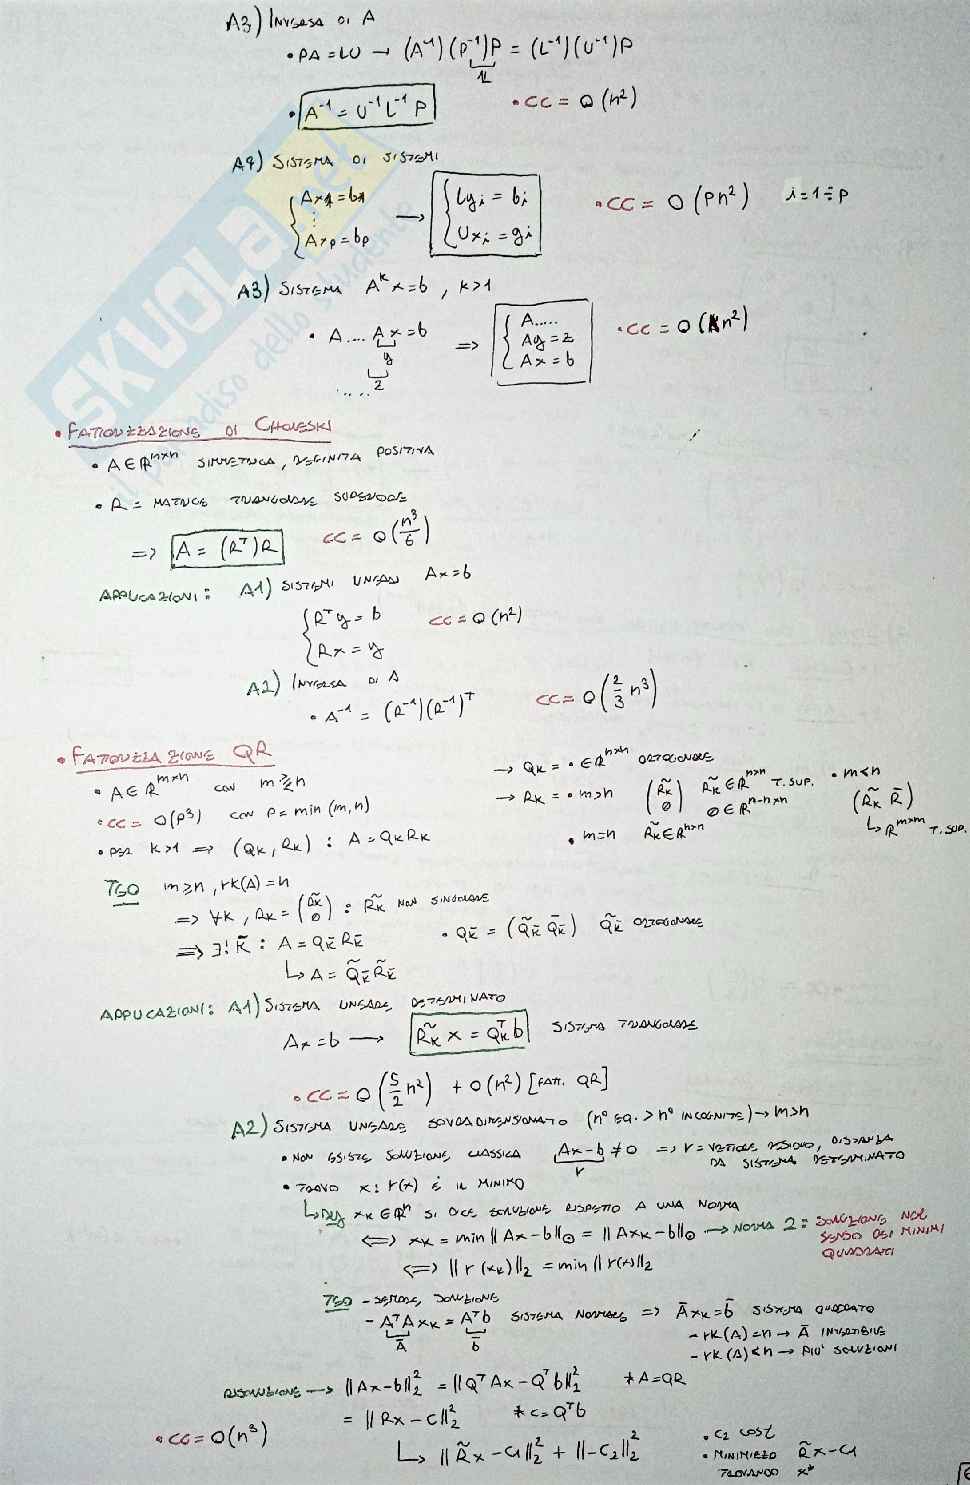 A3) INVERSA DI A
• PA = LU → (A⁻¹)(P⁻¹)P = (L⁻¹)(U⁻¹)P
1L
• A⁻¹ = U⁻¹L⁻¹P • CC = O(n²)
A4) SISTEMA DI SISTEMI
{ Ax₁ = b₁ ⋮ Axp = bp → { Lyi = bi Uxi = yi • CC = O(pn²) i = 1÷p
A3) SISTEMA Aᵏx = b, k>1
• A.... Ax = b ⇒ { A..... Ay = z Ax = b • CC = O(kn²)
y
z
....
SKUOLA.net
il paradiso dello studente
• FATTORIZZAZIONE DI CHOLESKI
• A∈ℝⁿˣⁿ SIMMETRICA, DEFINITA POSITIVA
• R = MATRICE TRIANGOLARE SUPERIORE
⇒ A = (Rᵀ)R CC = O(n³/6)
APPLICAZIONI: A1) SISTEMI LINEARI Ax = b
{ Rᵀy = b Rx = y CC = O(n²)
A2) INVERSA DI A
• A⁻¹ = (R⁻¹)(R⁻¹)ᵀ CC = O(2/3 n³)
• FATTORIZZAZIONE QR
• A∈ℝᵐˣⁿ CON m ≥ n
• CC = O(p³) CON p = min(m,n)
• PER k>1 ⇒ (Qk, Rk) : A = QkRk
→ Qk = • ∈ℝⁿˣⁿ ORTOGONALE
→ Rk = • m>n (R̃k / 0) R̃k∈ℝⁿˣⁿ T.SUP. 0∈ℝⁿ⁻ⁿˣⁿ • m<n (R̃k R̄)
↳ ℝᵐˣᵐ T.SUP.
• m=n R̃k∈ℝⁿˣⁿ
TEO m≥n, rk(A)=n
⇒ ∀k, Rk = (R̃k / 0) : R̃k NON SINGOLARE
⇒ ∃! k̄ : A = Qk̄ Rk̄ • Qk̄ = (Q̃k̄ Q̄k̄) Q̃k̄ ORTOGONALE
↳ A = Q̃k̄ R̃k̄
APPLICAZIONI: A1) SISTEMA LINEARE DETERMINATO
Ax = b → R̃k x = Qkᵀ b SISTEMA TRIANGOLARE
• CC = O(5/2 n²) + O(n²) [FATT. QR]
A2) SISTEMA LINEARE SOVRADIMENSIONATO (n° EQ. > n° INCOGNITE) → m>n
• NON ESISTE SOLUZIONE CLASSICA Ax-b ≠ 0 ⇒ r = VETTORE RESIDUO, DISTANZA
r DA SISTEMA DETERMINATO
• TROVO x : r(x) È IL MINIMO
↳ Def xk∈ℝⁿ SI DICE SOLUZIONE RISPETTO A UNA NORMA
⇔ xk = min‖Ax-b‖⊙ = ‖Axk-b‖⊙ → NORMA 2 : SOLUZIONE NEL
SENSO DEI MINIMI
QUADRATI
⇔ ‖r(xk)‖₂ = min‖r(x)‖₂
TEO - SEMPRE SOLUZIONE
- AᵀAxk = Aᵀb SISTEMA NORMALE ⇒ Āxk = b̄ SISTEMA QUADRATO
Ā b̄ - rk(A)=n → Ā INVERTIBILE
- rk(A)<n → PIU' SOLUZIONI
RISOLUZIONE → ‖Ax-b‖₂² = ‖QᵀAx - Qᵀb‖₂² * A=QR
= ‖Rx - C‖₂² * c = Qᵀb
• CC = O(n³)
↳ ‖R̃x - C₁‖₂² + ‖-C₂‖₂² • C₂ COST
• MINIMIZZO R̃x - C₁
TROVANDO x*